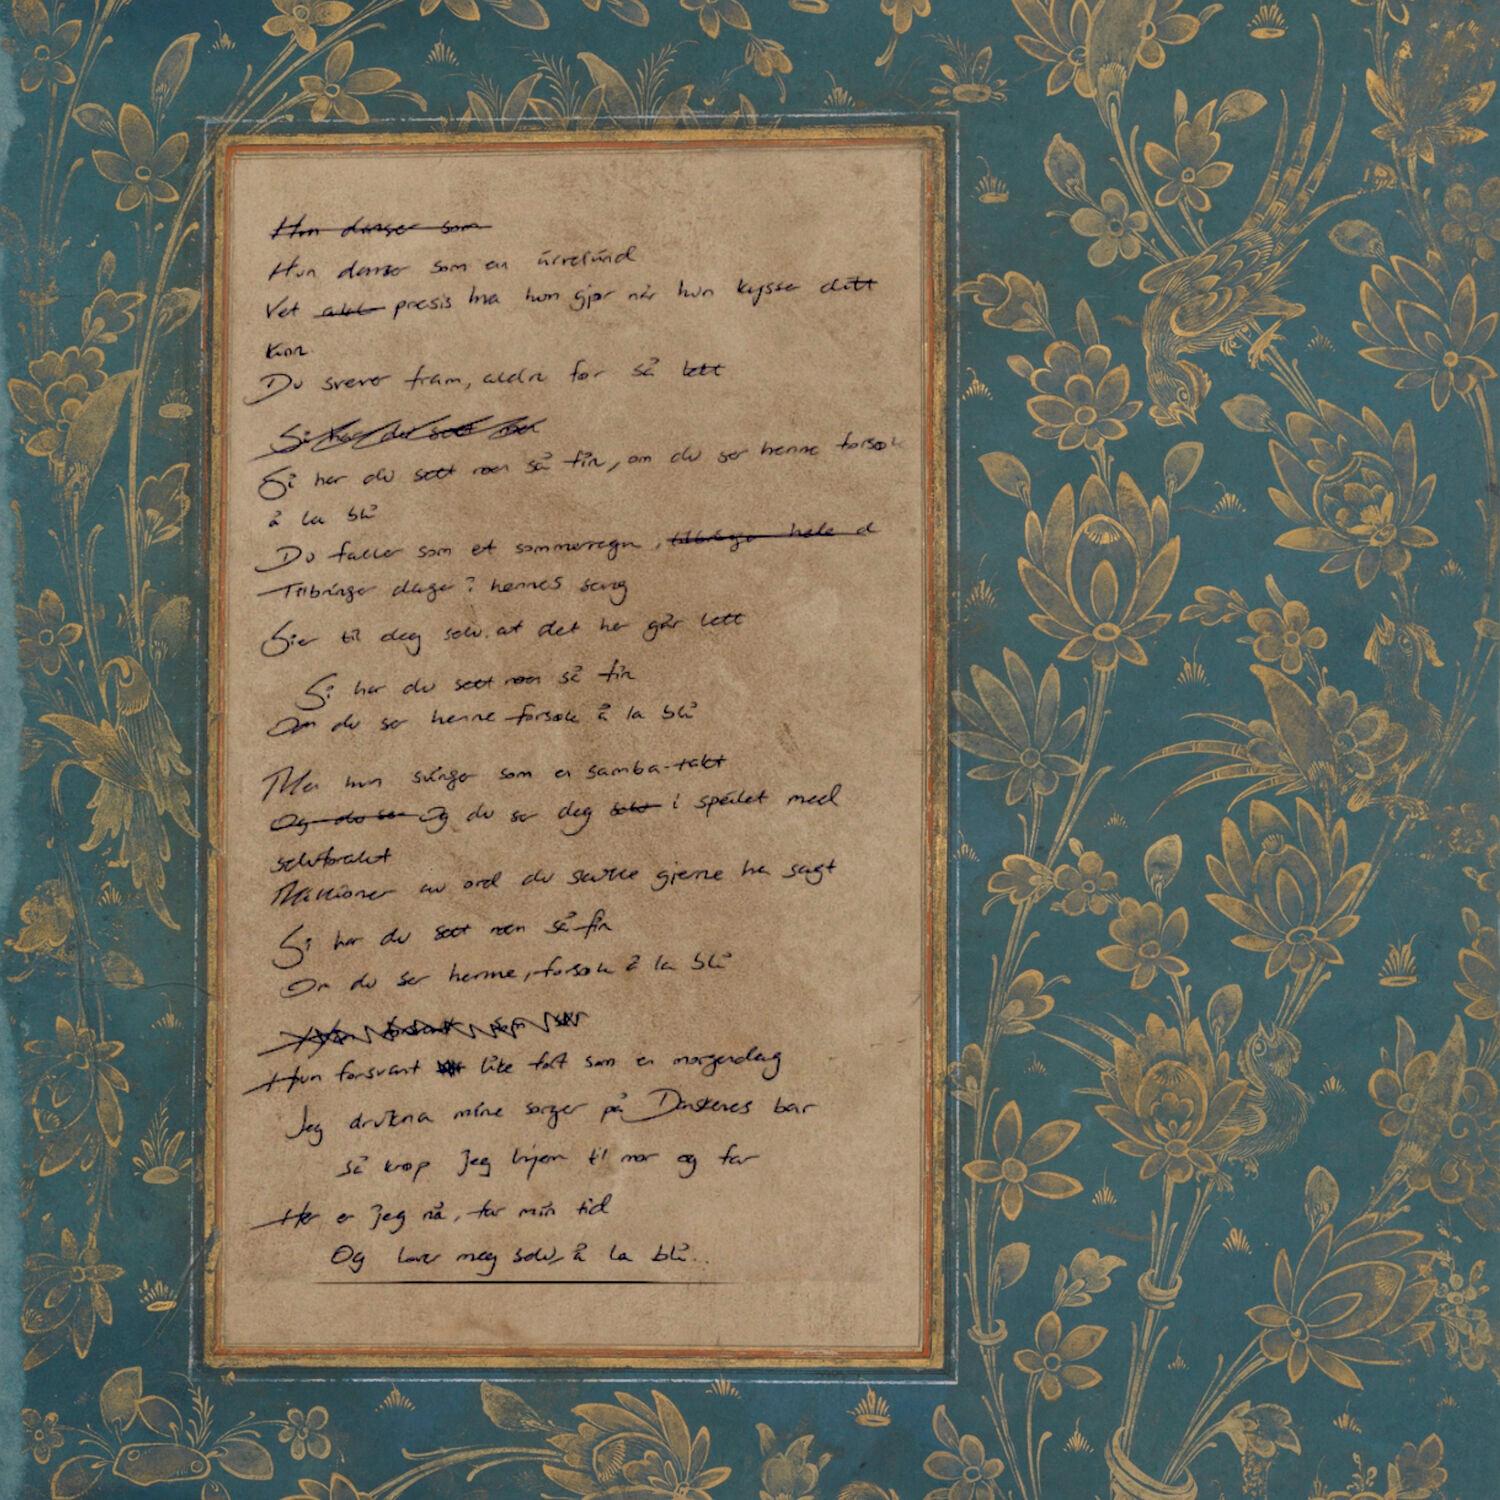 Hun danser som
Hun danser som en virvelvind
Vet alt presis hva hun gjør når hun kysser ditt
kinn
Du svever fram, aldri før så lett
Si har du sett noen
Si har du sett noen så fin, om du ser henne forsøk
å la bli
Du faller som et sommerregn, tilbringe hele d
Tilbringer dager i hennes seng
Sier til deg selv at det her går lett
Si har du sett noen så fin
Om du ser henne forsøk å la bli
Men hun svinger som en samba-takt
Og du ser Og du ser deg selv i speilet med
selvforakt
Millioner av ord du skulle gjerne ha sagt
Si har du sett noen så fin
Om du ser henne, forsøk å la bli
Hun forsvant
Hun forsvant like fort som en morgendag
Jeg drukna mine sorger på Danskenes bar
så krøp jeg hjem til mor og far
Her er jeg nå, tar min tid
Og lover meg selv, å la bli...